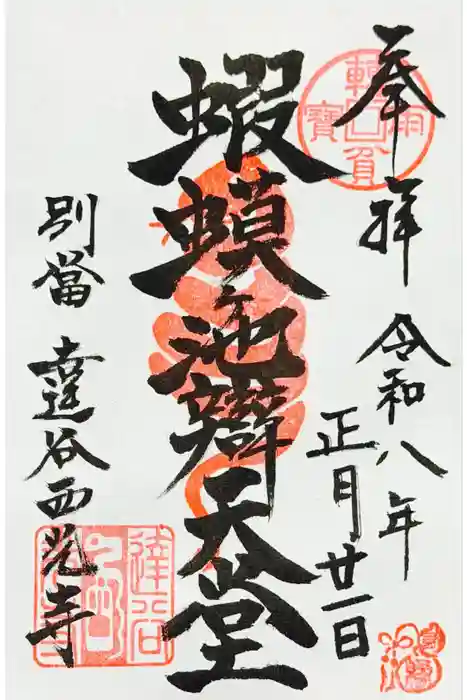 奉拝
令和八年
正月廿一日
蝦蟇ヶ池辯天堂
別當 達谷西光寺